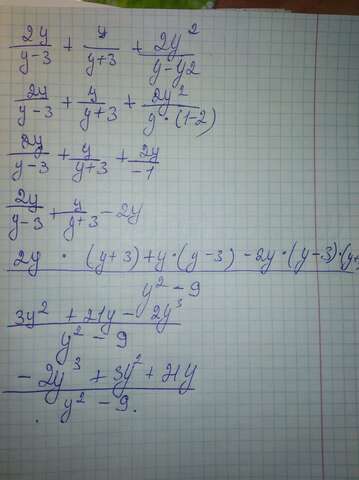 2y/(y-3) + y/(y+3) + 2y²/(y-y2)
2y/(y-3) + y/(y+3) + 2y²/(y·(1-2))
2y/(y-3) + y/(y+3) + 2y/(-1)
2y/(y-3) + y/(y+3) - 2y
(2y · (y+3) + y·(y-3) - 2y·(y-3)·(y+)/(y²-9)
(3y² + 21y - 2y³)/(y²-9)
(-2y³ + 3y² + 21y)/(y²-9.)